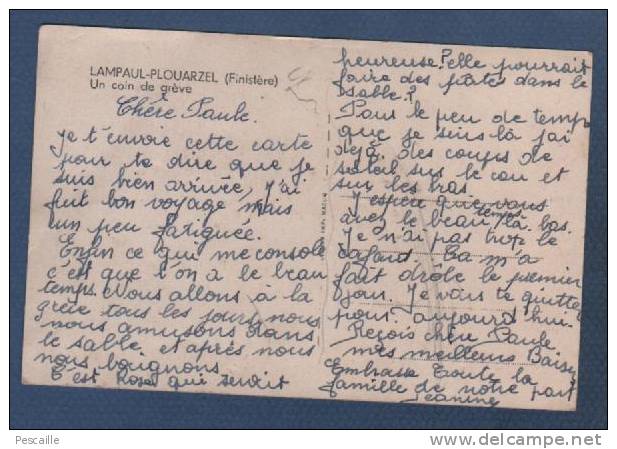 LAMPAUL-PLOUARZEL (Finistère)
Un coin de grève
Chère Paule.
Je t'envoie cette carte
pour te dire que je
suis bien arrivée, j'ai
fait bon voyage mais
un peu fatiguée.
Enfin ce qui me console
c'est que l'on a le beau
temps. Nous allons à la
grève tous les jours, nous
nous amusons dans
le sable, et après nous
nous baignons.
C'est Rose qui serait
heureuse? elle pourrait
faire des pâtés dans le
sable?
Pour le peu de temps
que je suis là j'ai
déjà des coups de
soleil sur le cou et
sur les bras.
J'espère que vous
avez le beau temps là-bas.
Je n'ai pas trop le
cafard. Ça m'a
fait drôle le premier
jour. Je vous te quitter
pour aujourd'hui.
Reçois chère Paule
mes meilleurs Baisers
Embrasse toute la
famille de notre part
Jeanine
Pescaille
http://www.delcampe.net